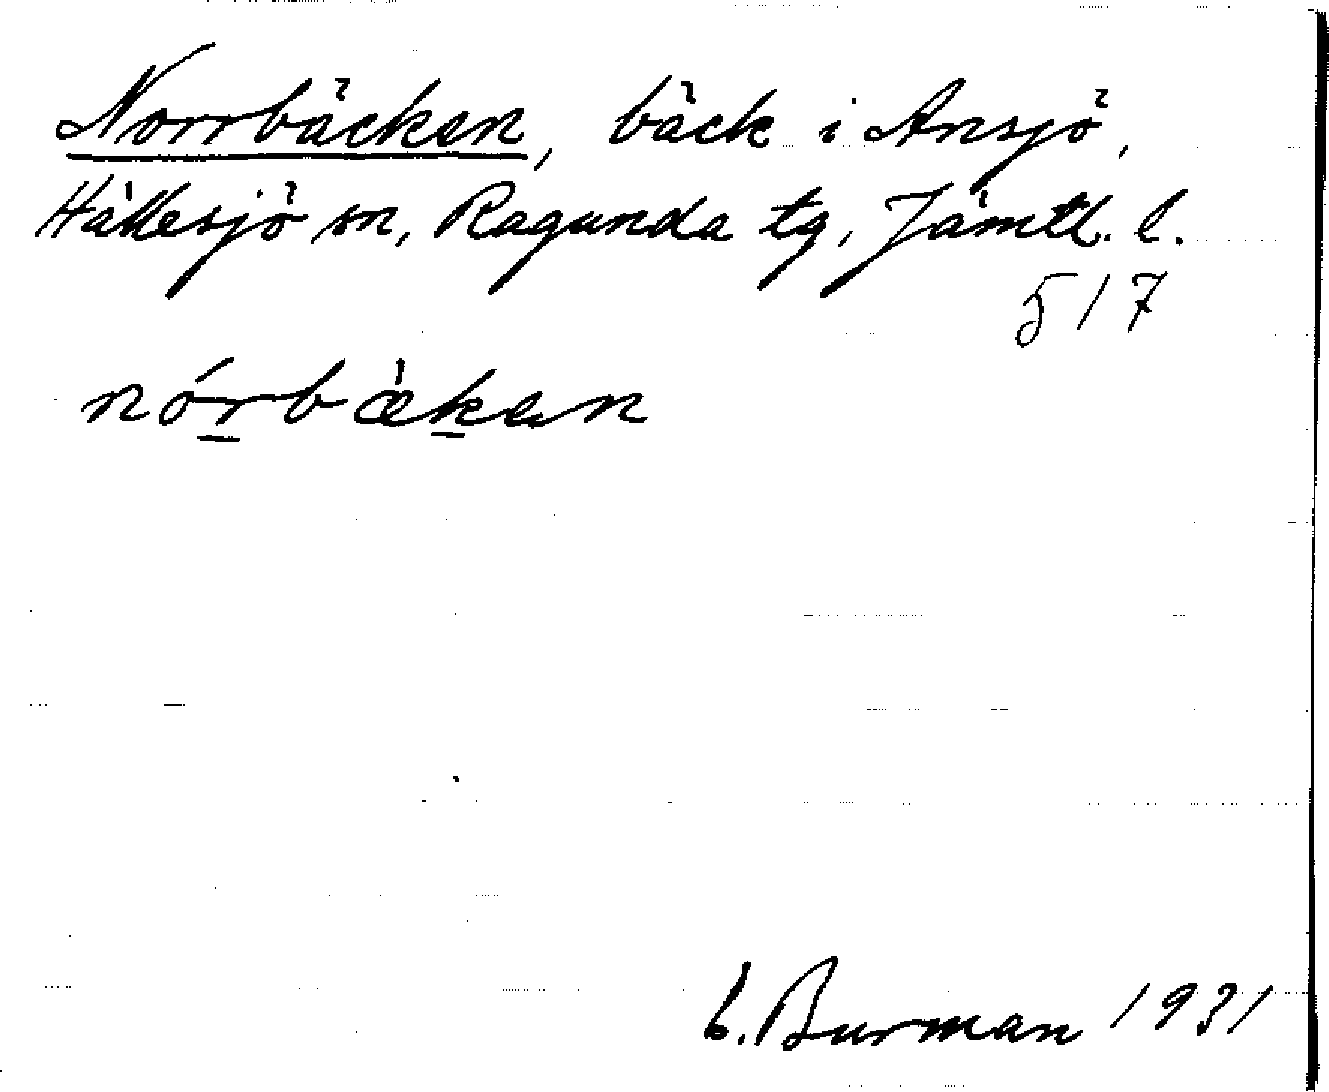 Norrbäcken, bäck i Ansjö,
Hällesjö sn, Ragunda tg, Jämtl. l.
517
nórbæ̀kan
E. Burman 1931